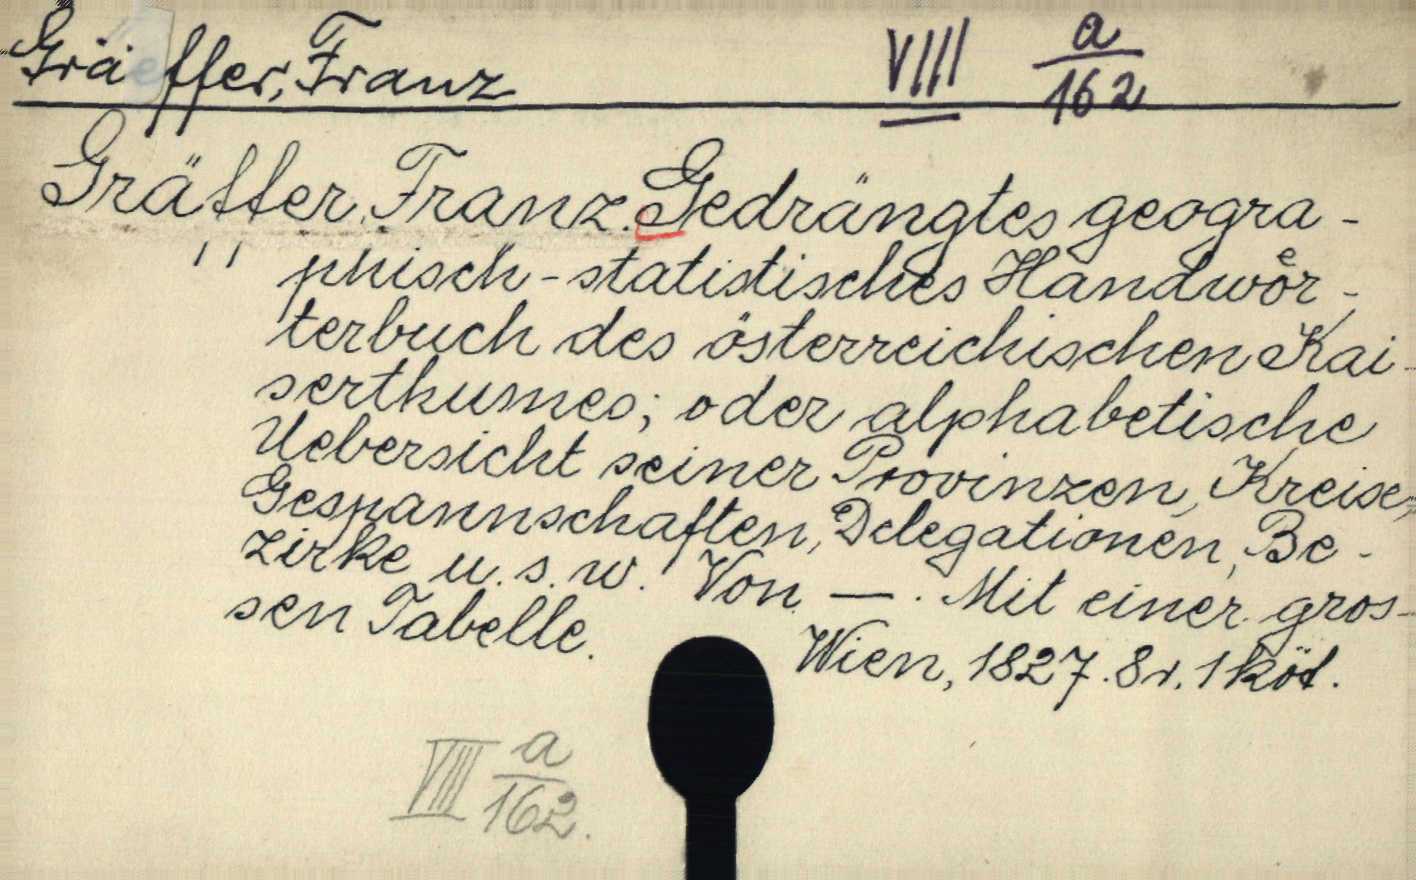 Gräeffer, Franz VIII a/162
Gräffer, Franz. Gedrängtes geogra-
phisch-statistisches Handwoͤr-
terbuch des österreichischen Kai-
serthumes; oder alphabetische
Uebersicht seiner Provinzen, Kreise,
Gespannschaften, Delegationen, Be-
zirke u. s. w. Von —. Mit einer gros-
sen Tabelle.
Wien, 1827. 8r. 1 köt.
VIII a/162.